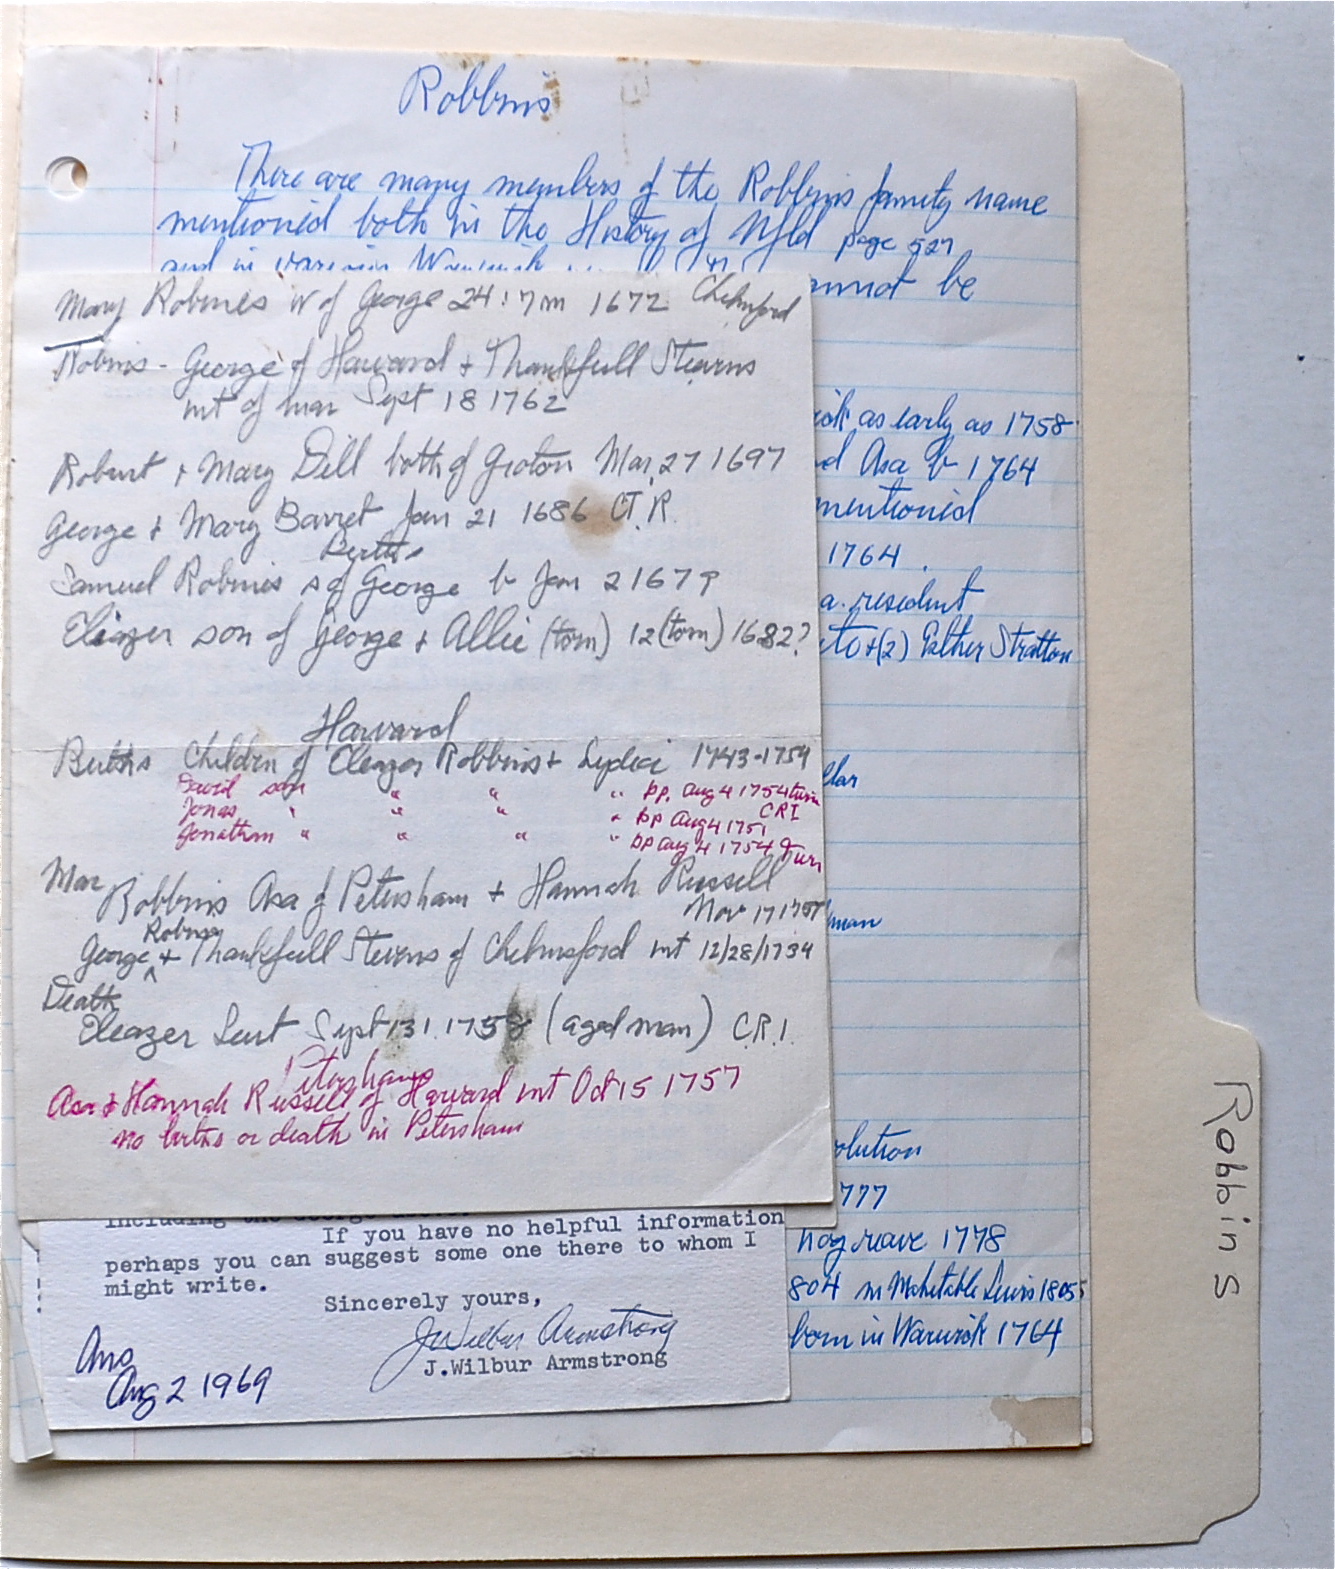 Robbins
There are many members of the Robbins family name
mentioned both in the History of Nfld page 527
and in Warwick
cannot be
Mary Robines w of George 24:7m 1672 Chelmsford
Robins - George of Harvard + Thankfull Stearns
int of mar Sept 18 1762
ick as early as 1758
Robert + Mary Dill both of Groton Mar 27 1697
d Asa b 1764
George + Mary Barret Jan 21 1686 CT.R.
mentioned
Births
1764.
Samuel Robinis s of George b Jan 2 167?
a resident
Eleazer son of George + Allie (torn) 12 (torn) 1682?
to + (2) Esther Stratton
Harvard
Births Children of Eleazer Robbins + Lydia 1743-1754
lar
David son " " " bp. Aug 4 1754 twin
Jonas " " " " bp Aug 4 1751 CRI
Jonathan " " " " bp Aug 4 1754 Twin
Mar Robbins Asa of Petersham + Hannah Russell
Nov 17 1757
man
Robins
George ^ + Thankfull Stevens of Chelmsford int 12/28/1734
Death
Eleazer Seut Sept 131. 1758 (aged man) C.R.I.
Petersham
Asa + Hannah Russell of Harvard int Oct 15 1757
no births or death in Petersham
olution
777
including the George
If you have no helpful information
perhaps you can suggest some one there to whom I
might write.
1778
804 m Mehetable Lewis 1805
Sincerely yours,
J Wilbur Armstrong
J.Wilbur Armstrong
born in Warwick 1764
Ans
Aug 2 1969
Robbins